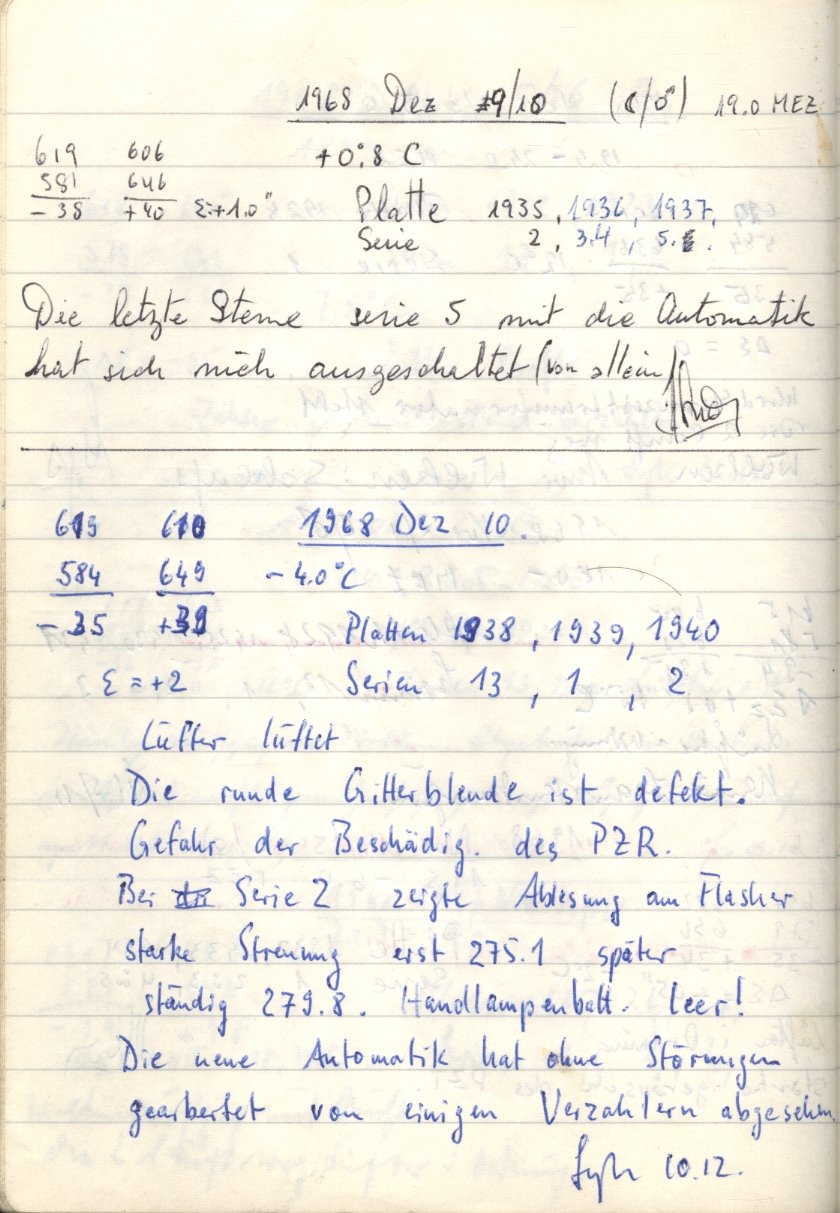 1968 Dez 9/10 19.0 MEZ
619 606 +0.8 C
581 646
-38 +40 Σ=+1.0" Platte 1935, 1936, 1937,
Serie 2, 3.4, 5.
Die letzte Sterne serie 5 mit die Automatik
hat sich nich ausgeschaltet (von allein)
619 610 1968 Dez 10.
584 649 -4.0°C
-35 +39 Platten 1938, 1939, 1940
Σ = +2 Serien 13, 1, 2
Lüfter lüftet
Die runde Gitterblende ist defekt.
Gefahr der Beschädig. des PZR.
Bei Serie 2 zeigte Ablesung am Flasher
starke Streuung erst 275.1 später
ständig 279.8. Handlampenbatt. leer!
Die neue Automatik hat ohne Störungen
gearbeitet von einigen Verzahlern abgesehen
10.12.